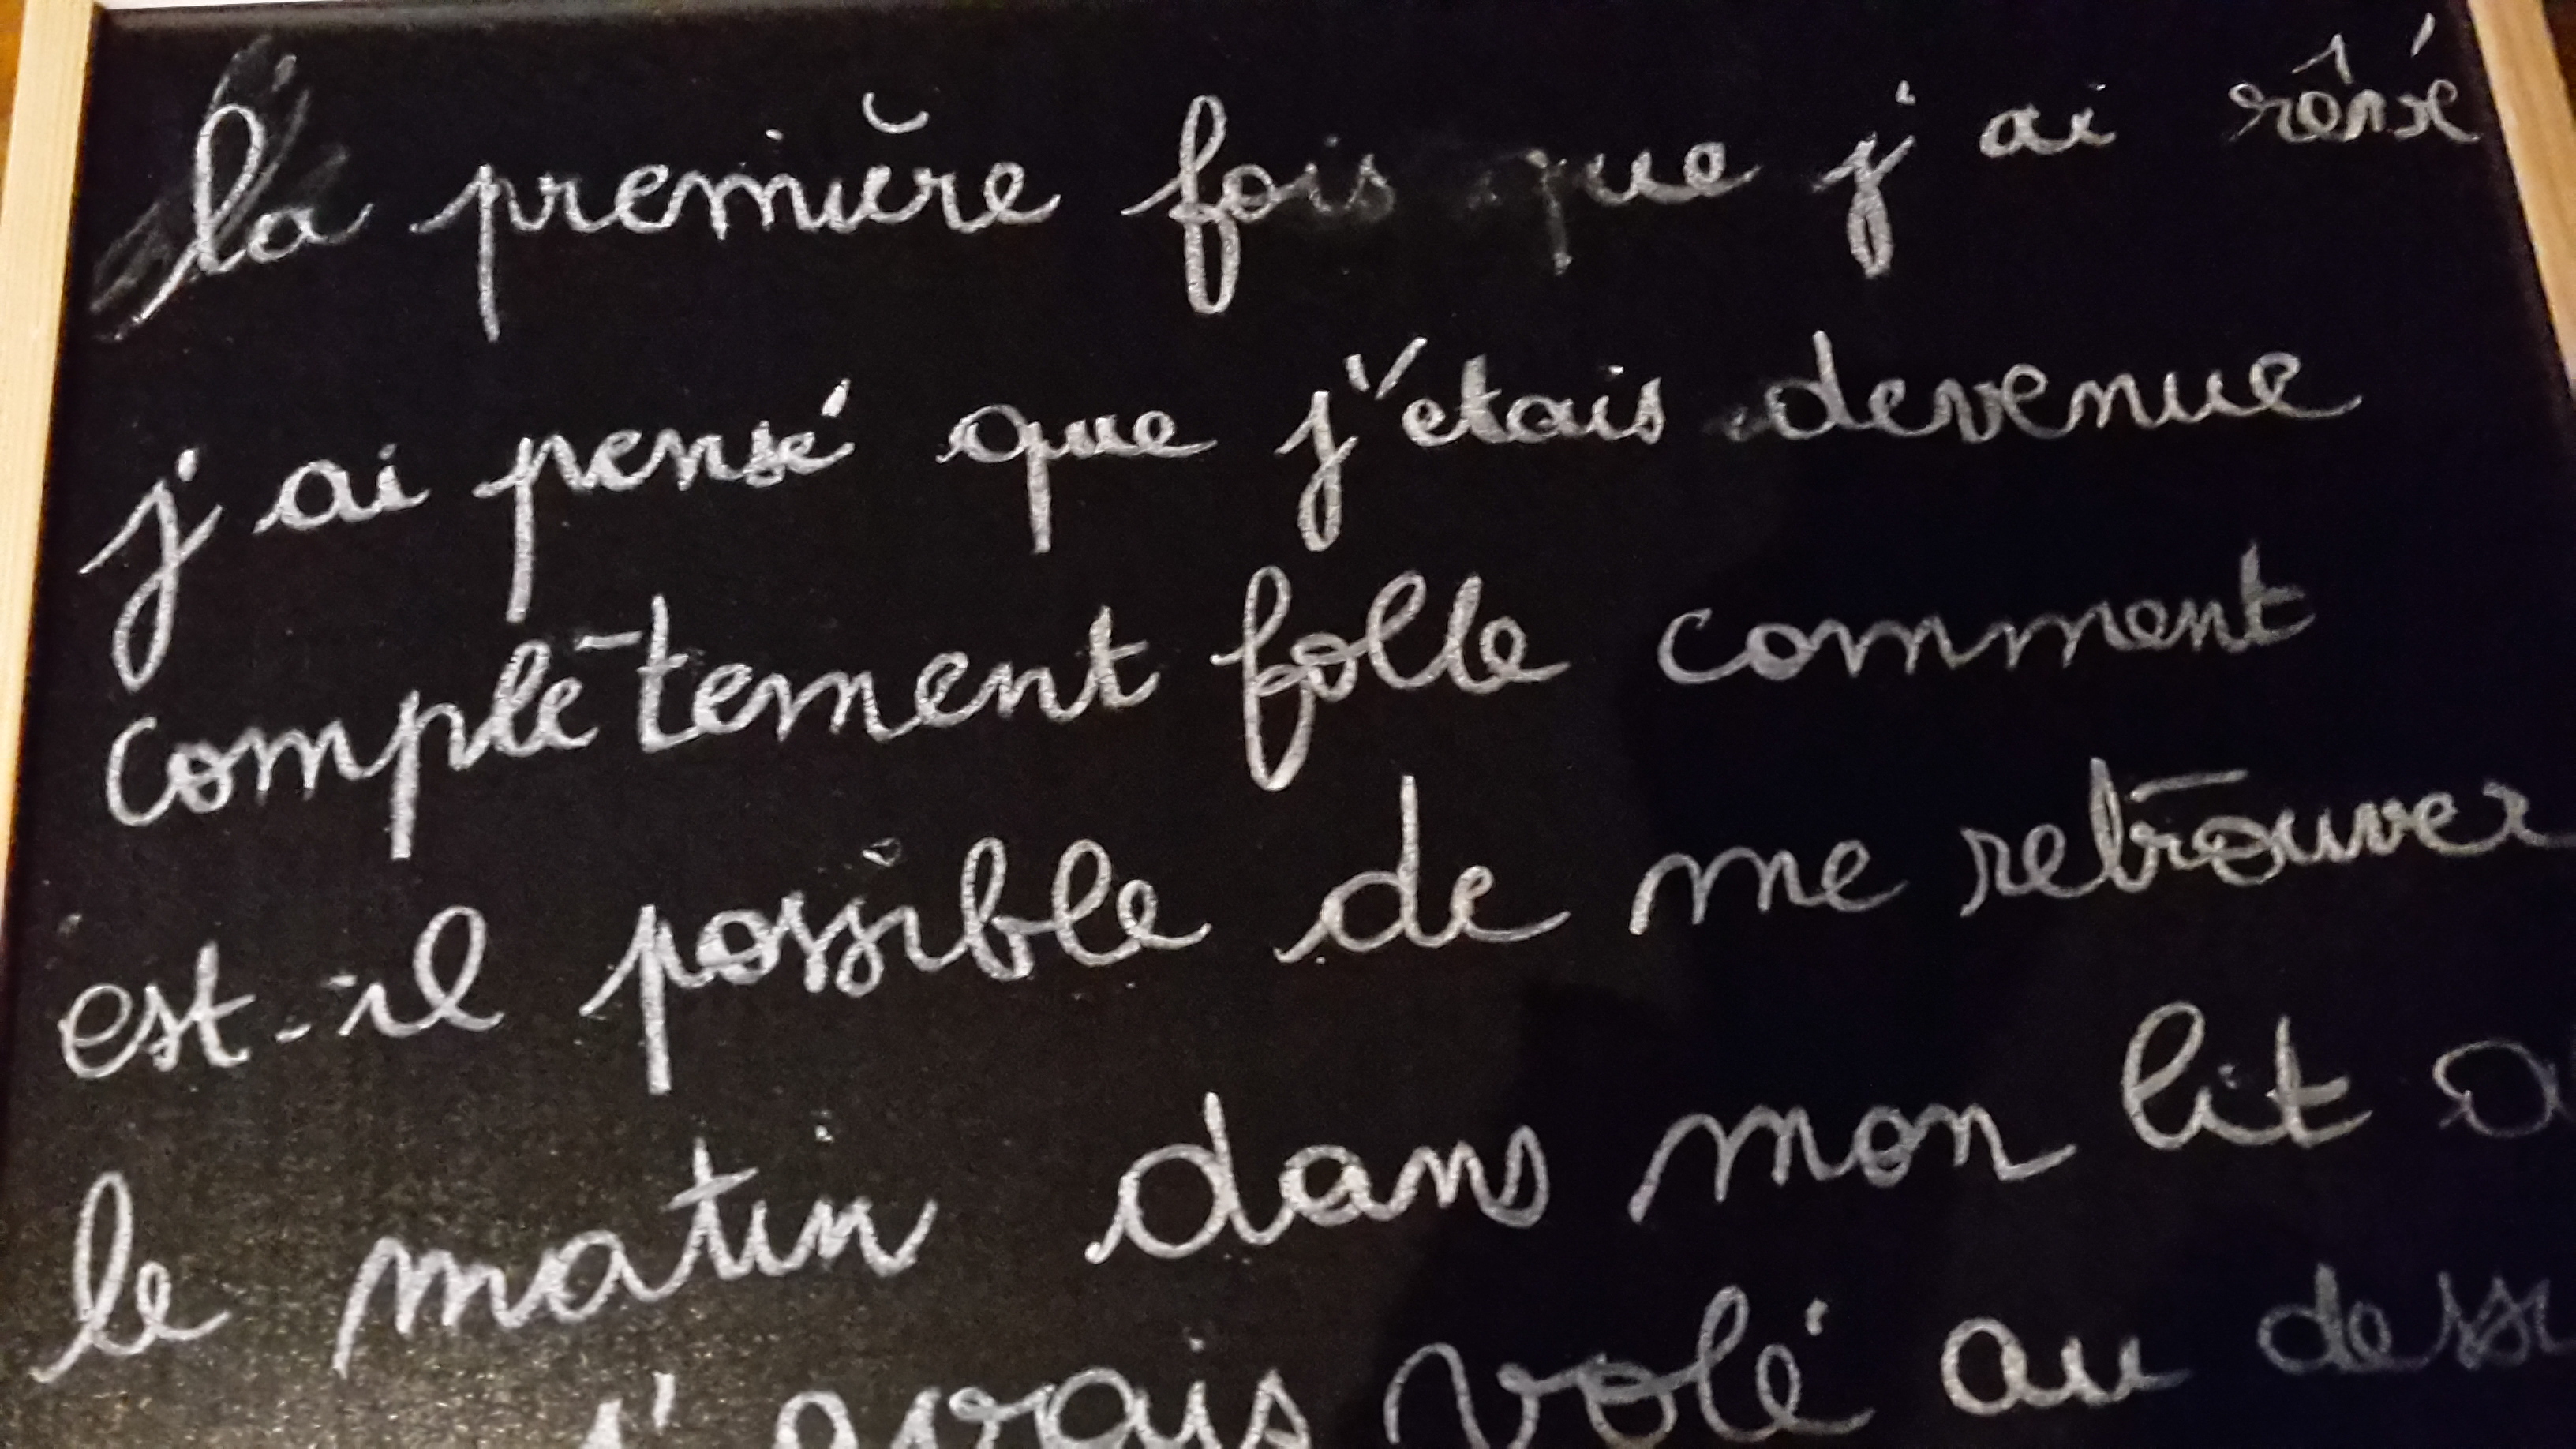 la première fois que j'ai rêvé
j'ai pensé que j'étais devenue
complètement folle comment
est-il possible de me retrouver
le matin dans mon lit
j'avais volé au